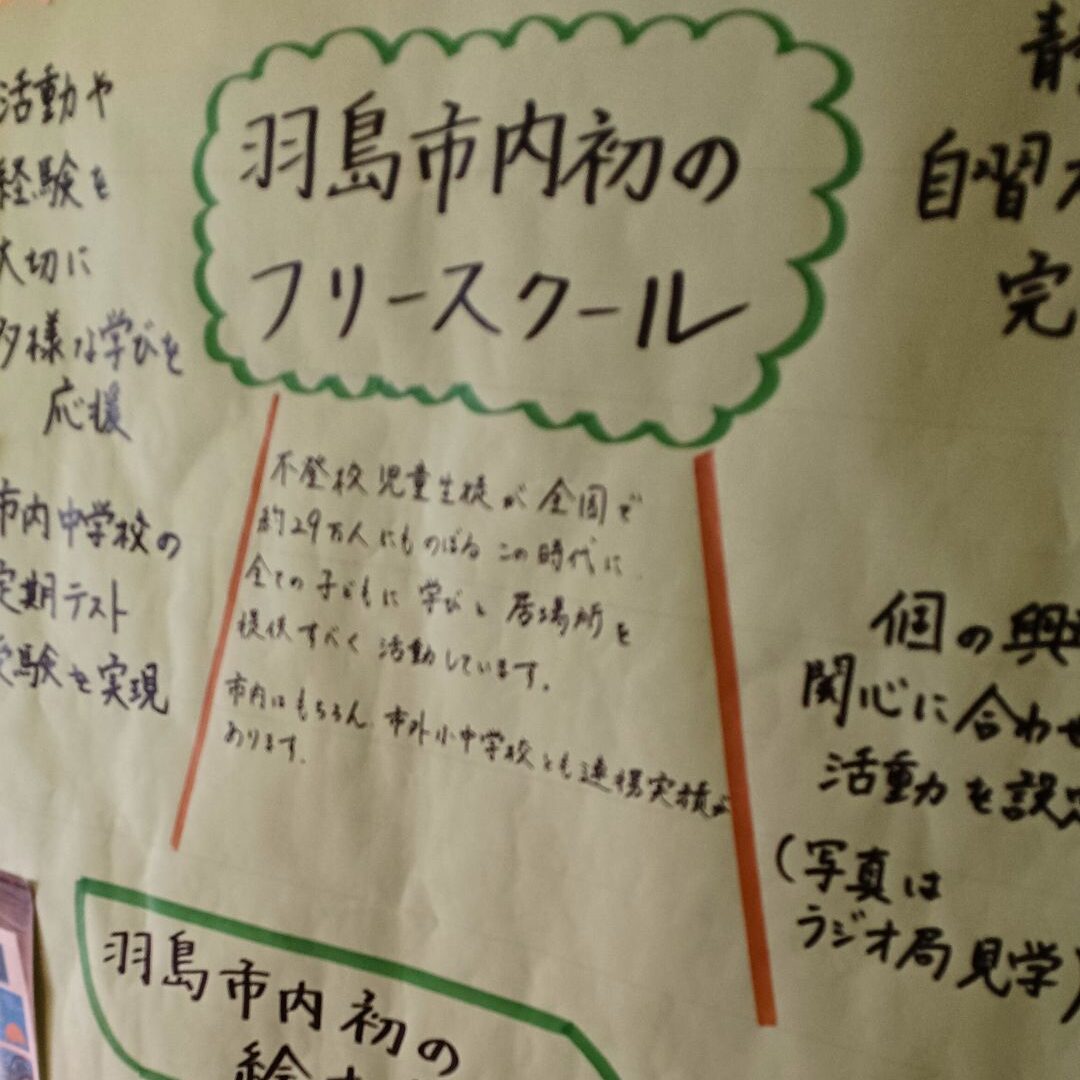 羽島市内初の
フリースクール
不登校児童生徒が全国で
約29万人にものぼるこの時代に
全ての子どもに学びと居場所を
提供すべく活動しています。
市内はもちろん、市外小中学校とも連携実績が
あります。
活動や
経験を
大切に
多様な学びを
応援
市内中学校の
定期テスト
受験を実現
自習
完
個の興
関心に合わせ
活動を設定
(写真は
ラジオ局見学)
羽島市内初の